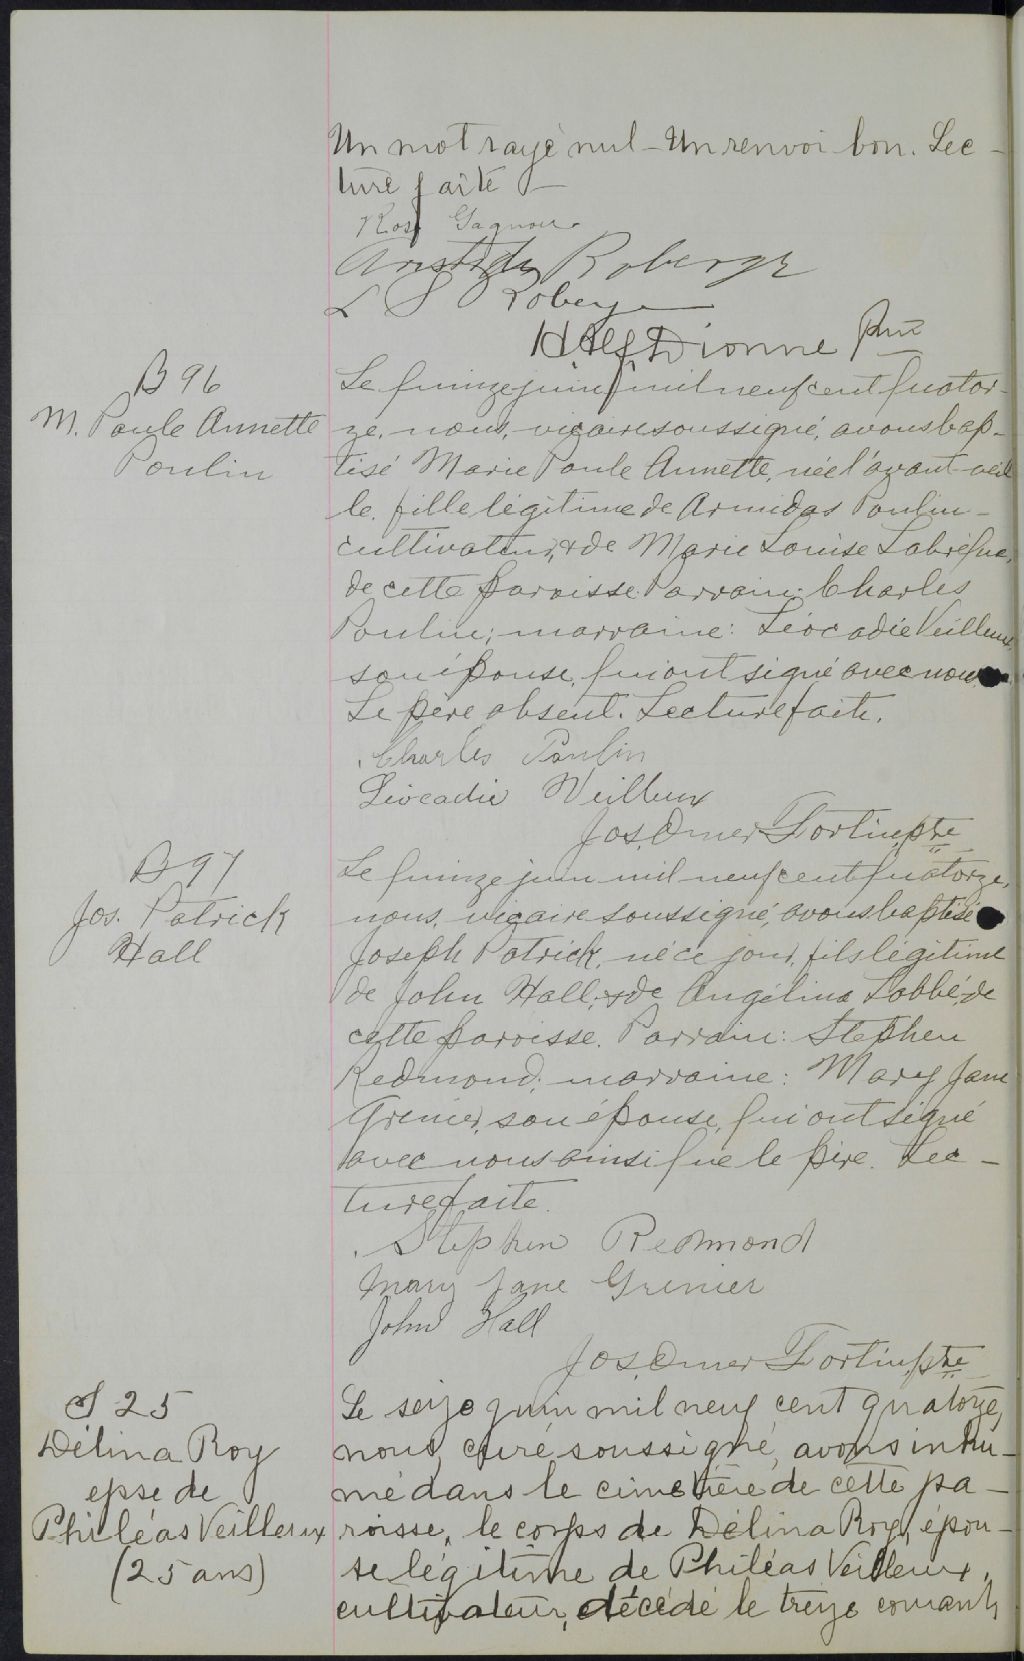 Un mot rayé nul - Un renvoi bon. Lec-
ture faite -
Rose Gagnon
Aristide Roberge
L S Roberge
H. Alf. Dionne Ptre
B 96
M. Paule Annette
Poulin
Le quinze juin mil neuf cent quator-
ze, nous, vicaire soussigné, avons bap-
tisé Marie Paule Annette, née l'avant-veil
le, fille légitime de Armidas Poulin
cultivateur, & de Marie Louise Labrèque,
de cette paroisse. Parrain: Charles
Poulin; marraine: Léocadie Veilleux,
son épouse, qui ont signé avec nous.
Le père absent. Lecture faite.
Charles Poulin
Léocadie Veilleux
Jos. Omer Fortin, ptre
B 97
Jos. Patrick
Hall
Le quinze juin mil neuf cent quatorze,
nous, vicaire soussigné, avons baptisé
Joseph Patrick, né ce jour, fils légitime
de John Hall, & de Angélina Labbé, de
cette paroisse. Parrain: Stephen
Redmond; marraine: Mary Jane
Grenier, son épouse, qui ont signé
avec nous ainsi que le père. Lec-
ture faite.
Stephen Redmond
Mary Jane Grenier
John Hall
Jos. Omer Fortin, ptre
S 25
Délina Roy
epse de
Philéas Veilleux
(25 ans)
Le seize juin mil neuf cent quatorze,
nous, curé soussigné, avons inhu-
mé dans le cimetière de cette pa-
roisse, le corps de Délina Roy, épou-
se légitime de Philéas Veilleux,
cultivateur, décédé le treize courant